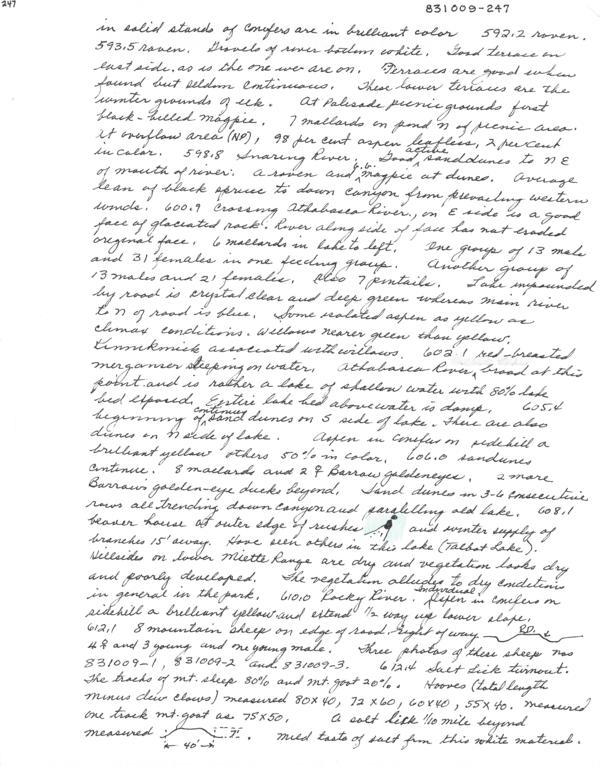 247
831009-247
in solid stands of conifers are in brilliant color 592.2 raven.
593.5 raven. Gravels of river bottom white. Good terrace on
east side, as is the one we are on. Terraces are good when
found but seldom continuous. These lower terraces are the
winter grounds of elk. At Palisade picnic grounds first
black-billed magpie. 7 mallards on pond N of picnic area.
At overflow area (NP), 98 per cent aspen leafless, 2 per cent
in color. 598.8 Snaring River. Good active sand dunes to NE
of mouth of river. A raven and b.b. magpie at dunes. Average
lean of black spruce to down canyon from prevailing western
winds. 600.9 crossing Athabasca River, on E side is a good
face of glaciated rock. River along side of face has not eroded
original face. 6 mallards in lake to left. One group of 13 male
and 31 females in one feeding group. Another group of
13 males and 21 females. Also 7 pintails. Lake impounded
by road is crystal clear and deep green whereas main river
to N of road is blue. Some isolated aspen as yellow as
climax conditions. Willows nearer green than yellow.
Kinnikinick associated with willows. 602.1 red-breasted
merganser sleeping on water. Athabasca River broad at this
point and is rather a lake of shallow water with 80% lake
bed exposed. Entire lake bed above water is damp. 605.4
beginning of continuous sand dunes on S side of lake. There are also
dunes on N side of lake. Aspen in conifers on sidehill a
brilliant yellow others 50% in color. 606.0 sand dunes
continue. 8 mallards and 2 ♀ Barrow goldeneyes. 2 more
Barrow's golden-eye ducks beyond. Sand dunes in 3-6 consecutive
rows all trending down canyon and paralelling old lake. 608.1
beaver house at outer edge of rushes and winter supply of
branches 15' away. Have seen others in this lake (Talbot Lake).
Hillsides on lower Miette Range are dry and vegetation looks dry
and poorly developed. The vegetation alludes to dry conditions
in general in the park. 610.0 Rocky River. Individual Aspen in conifers on
sidehill a brilliant yellow and extend 1/2 way up lower slope.
612.1 8 mountain sheep on edge of road. Right of way RD.
4 ♀ and 3 young and one young male. Three photos of these sheep nos
831009-1, 831009-2 and 831009-3. 612.4 Salt Lick turnout.
The tracks of mt. sheep 80% and mt. goat 20%. Hooves (total length
minus dew claws) measured 80x40, 72x60, 60x40, 55x40. measured
one track mt. goat as 75x50. A salt lick 1/10 mile beyond
measured 40' 7'. mild taste of salt from this white material.